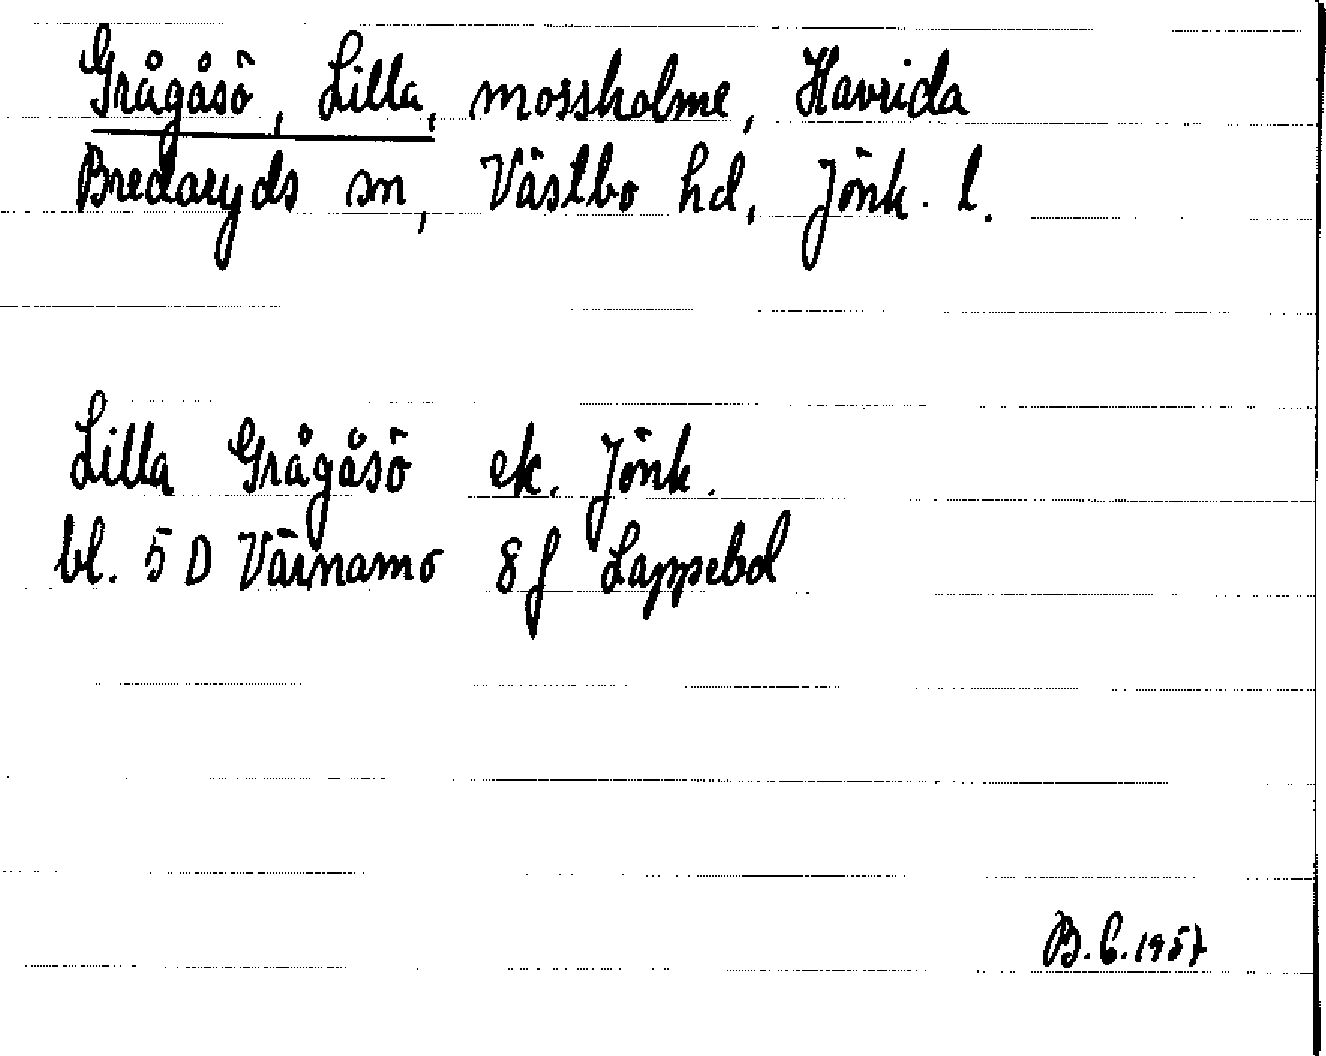 Grågåsö, Lilla, mossholme, Havrida
Bredaryds sn, Västbo hd, Jönk. l.
Lilla Grågåsö ek. Jönk.
bl. 5 D Värnamo 8 f Lappebol
B.C. 1957